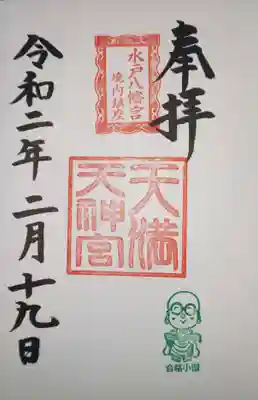 奉拝
水戸八幡宮
境内鎮座
天満
天神宮
令和二年二月十九日
合格小